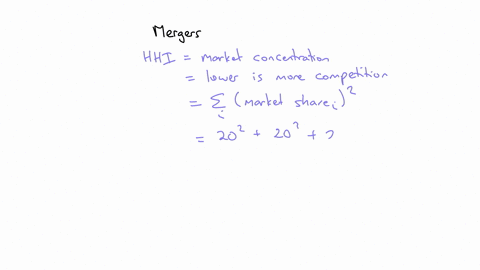 Mergers
HHI = market concentration
= lower is more competition
= Σᵢ (market shareᵢ)²
= 20² + 20² +